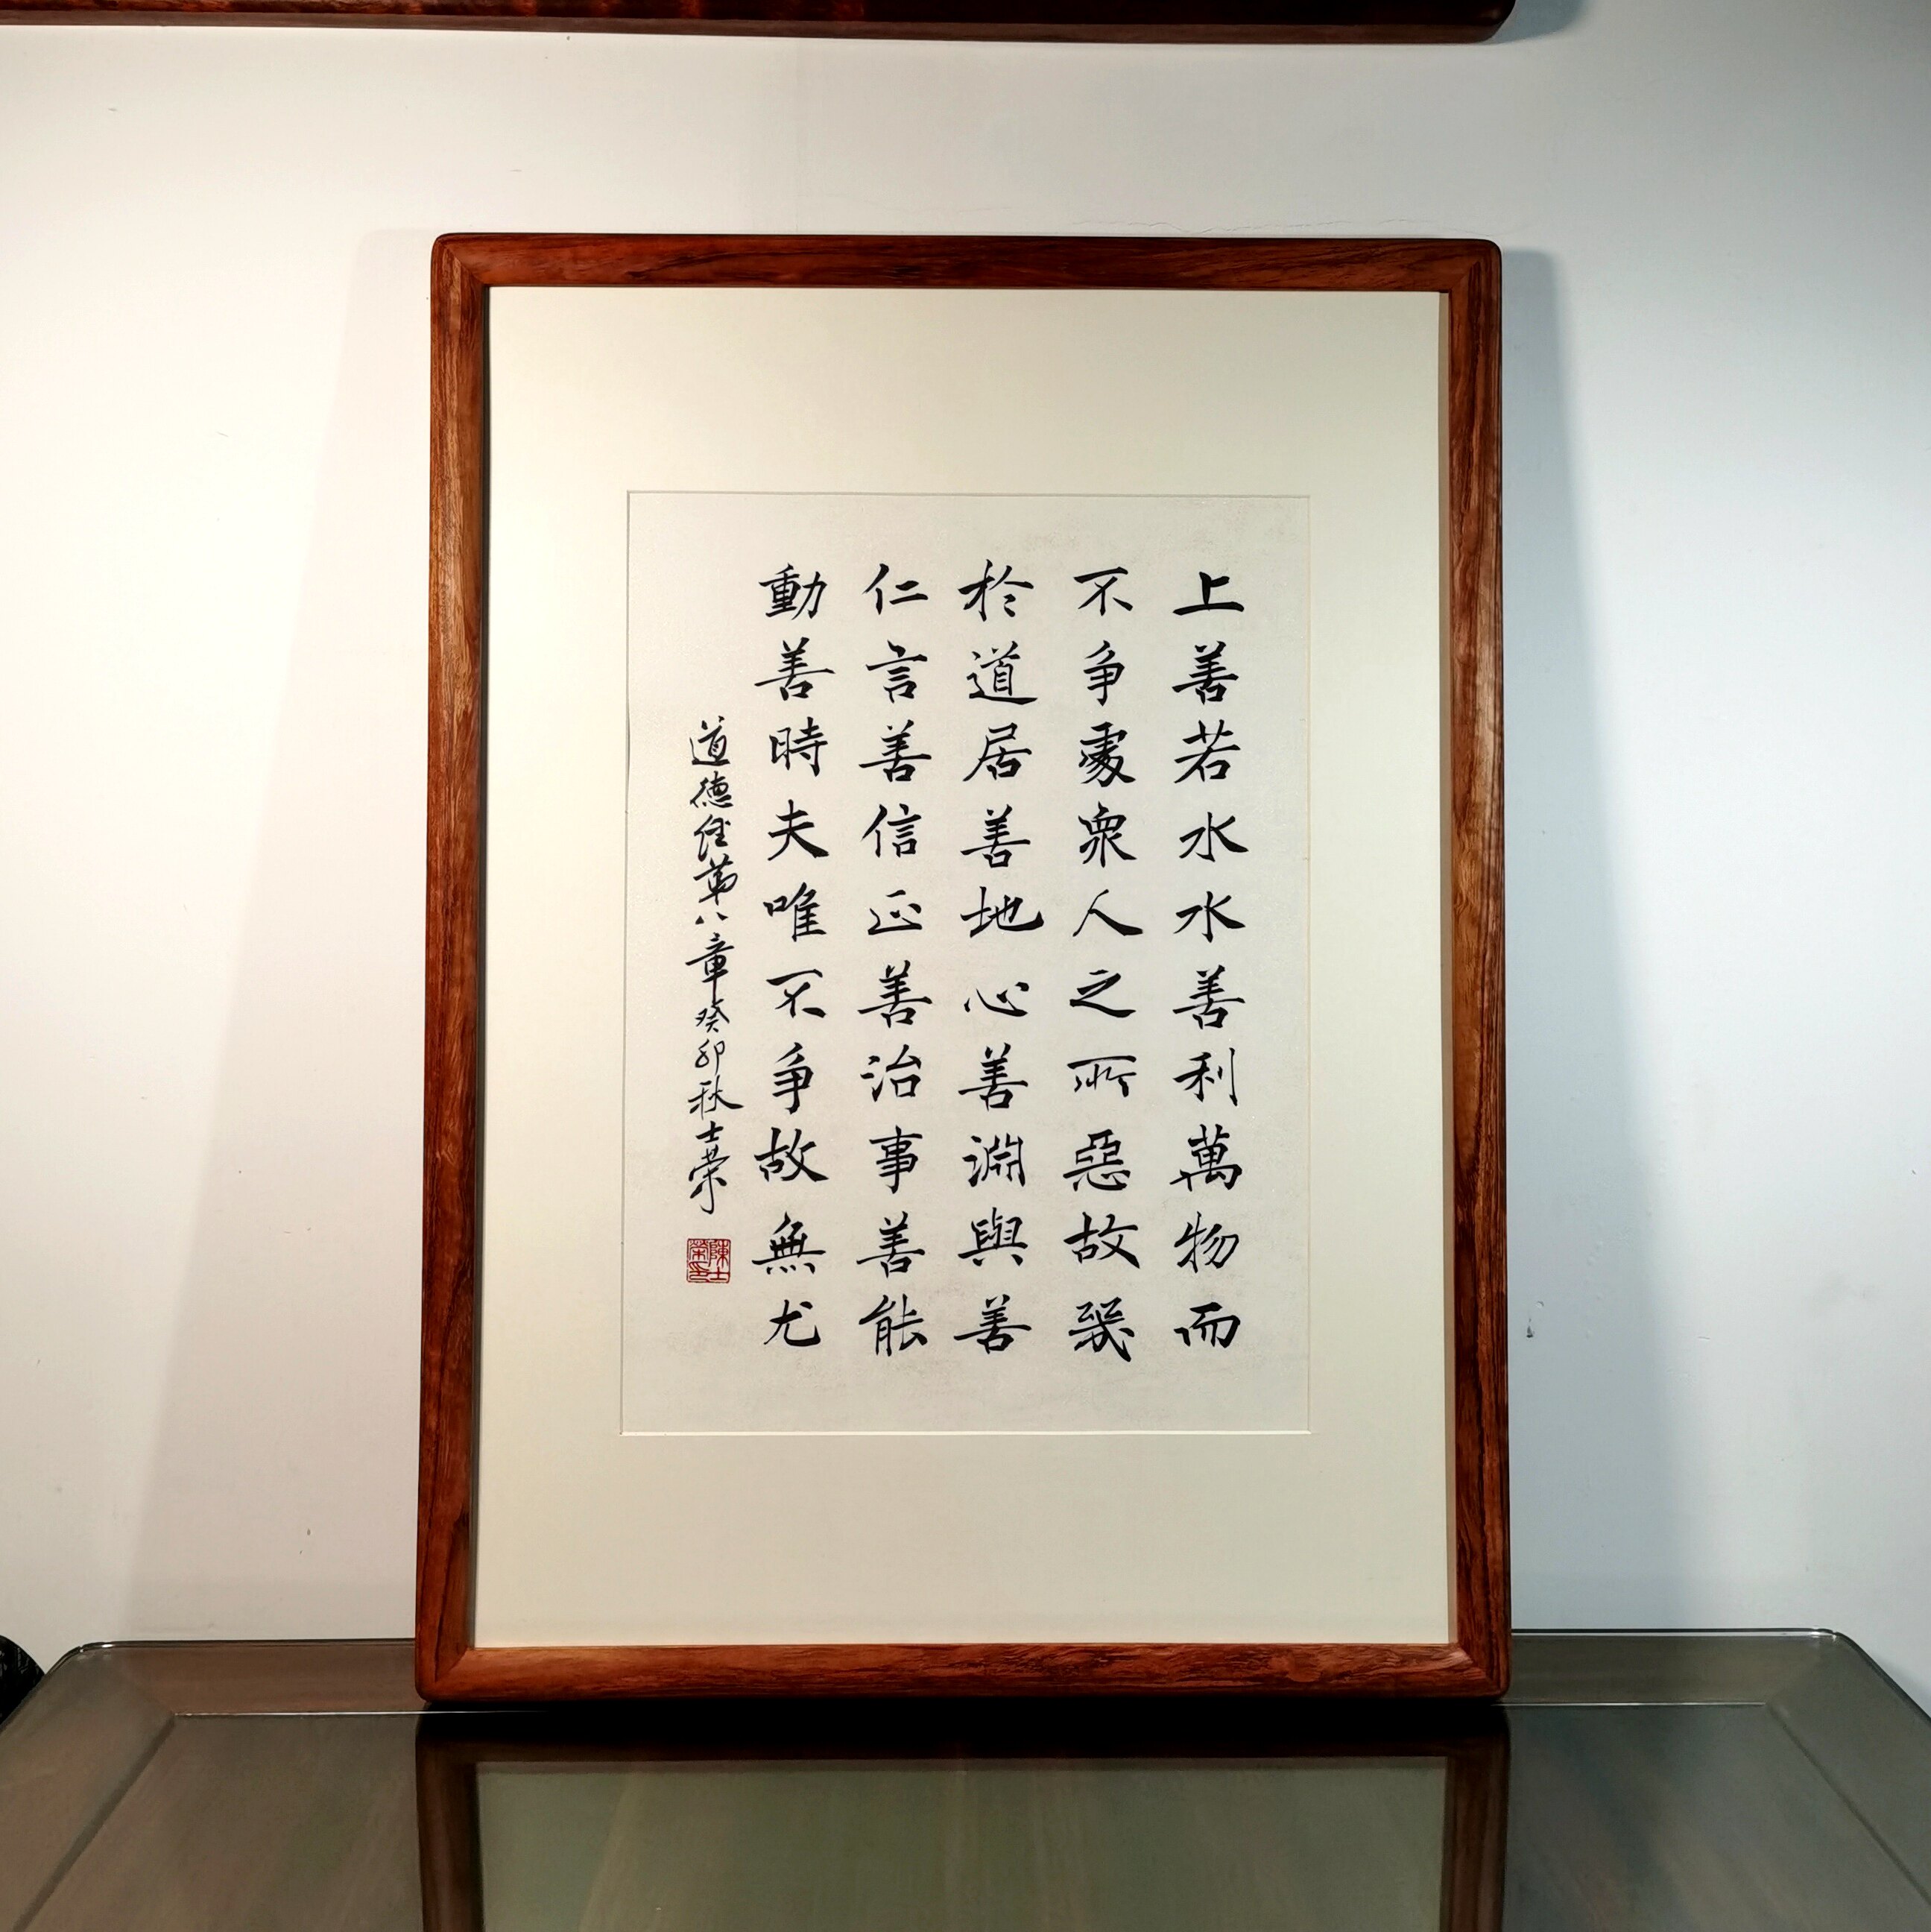 上善若水水善利萬物而
不争處衆人之所惡故幾
於道居善地心善淵與善
仁言善信正善治事善能
動善時夫唯不争故無尤
道德經第八章癸卯秋士榮
陳士榮印